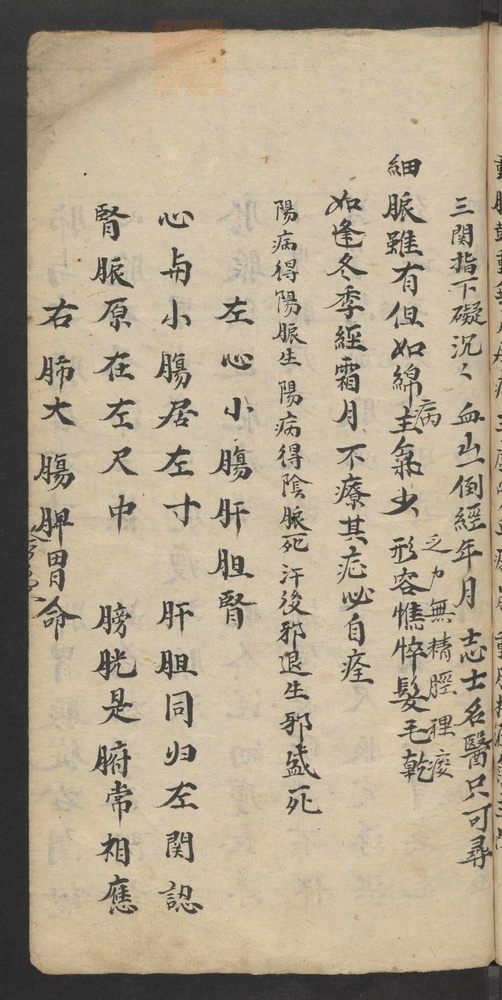 三関指下礙沉〻 血山倒經年月 志士名醫只可尋
細脈雖有但如綿 主病氣少 乏力無精脛裡痠 形容憔悴髮毛乾
如逢冬季經霜月 不療其疒必自痊
陽病得陽脈生 陽病得陰脈死 汗後邪退生 邪盛死
左心小腸肝胆腎
心与小腸居左寸 肝胆同归左関認
腎脈原在左尺中 膀胱是腑常相應
右肺大腸脾胃命